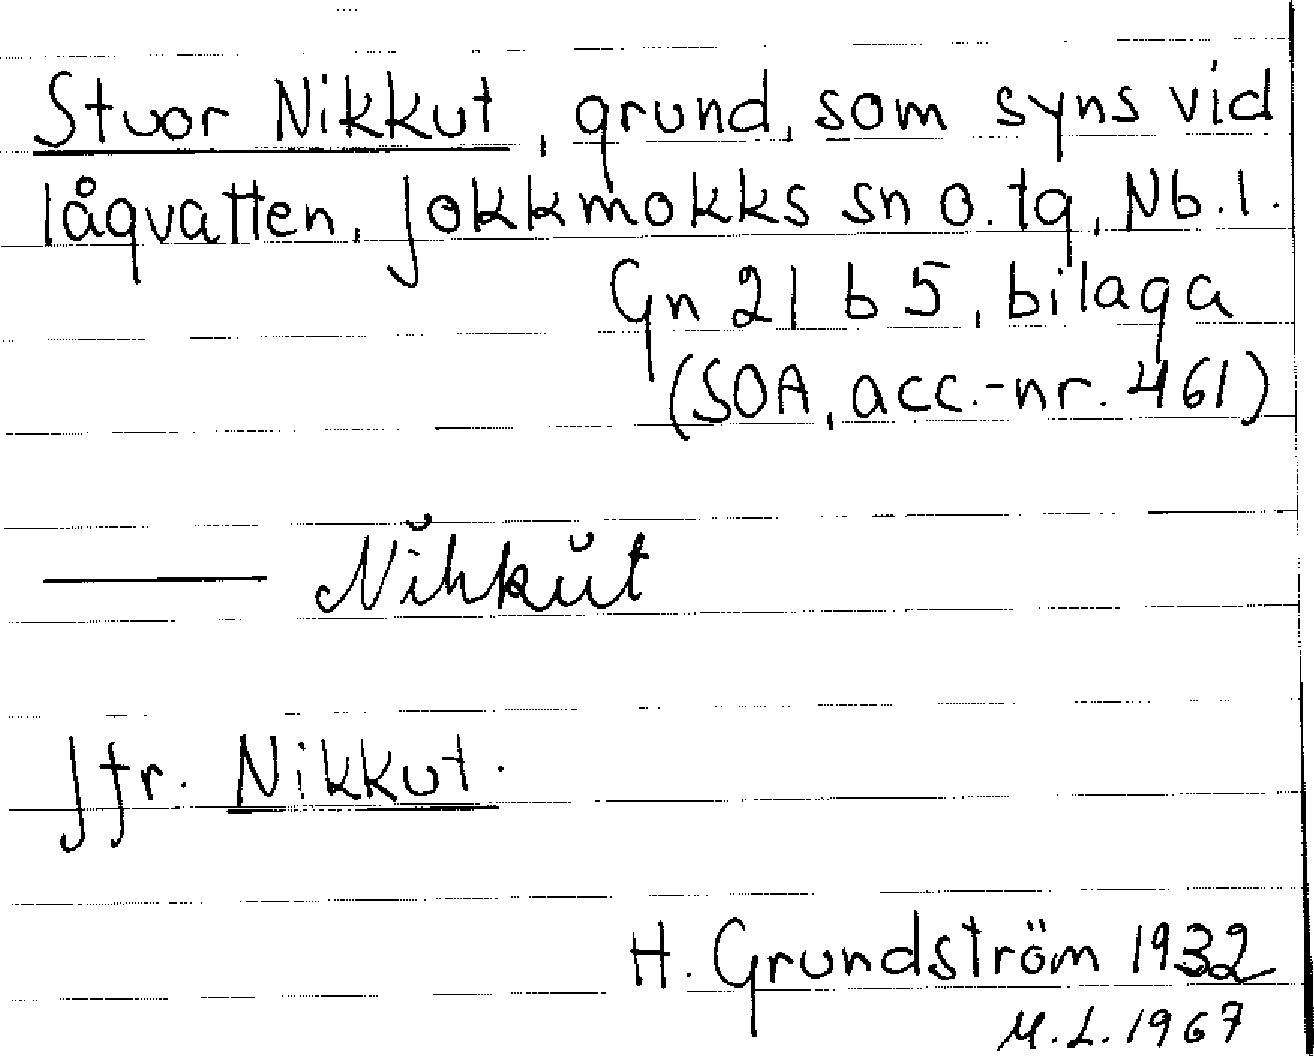 Stuor Nikkut, grund, som syns vid
lågvatten, Jokkmokks sn o. tg, Nb. l.
Gn 21 b 5, bilaga
(SOA, acc.-nr. 461)
—— Nĭhkŭt
Jfr. Nikkut.
H. Grundström 1932
M.L. 1967